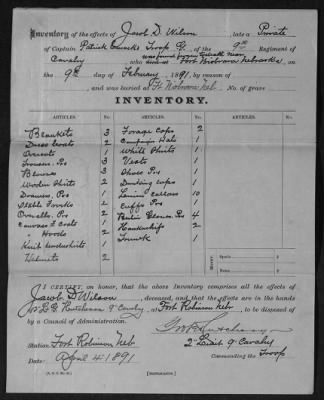 Inventory of the effects of Jacob D. Wilson late a Private
of Captain Patrick Troop G. of the 9th Regiment of
Cavalry who Fort Robinson Nebraska, on
the 9th day of February 1891, by reason of
and was buried at Ft Robinson Neb. No. of grave
INVENTORY.
ARTICLES. No. ARTICLES. No. ARTICLES. No.
Blankets 3 Forage Caps 2
Dress coats 2 Campaign Hats 1
Overcoats 1 White Shirts 1
Trousers. Prs 3 Vests 3
Blouses 3 Shoes Prs 1
Woolen Shirts 2 caps 1
Drawers, Prs 1 Linen Collars 10
Stable Frocks 2 Cuffs Prs 1
Overalls, Prs 2 Gloves. Prs 4
Canvas F. Coats 1 Handkerchiefs 2
" Hoods 2 Trunk 1
Knit undershirts 1
Helmets 2
I CERTIFY, on honor, that the above Inventory comprises all the effects of
Jacob D Wilson, deceased, and that the effects are in the hands
of Hutcheson 9" Cavalry at Fort Robinson Neb. to be disposed of
by a Council of Administration.
Station: Fort Robinson Neb.
Date: April 4 1891
2" Lieut 9" Cavalry
Commanding the Troop